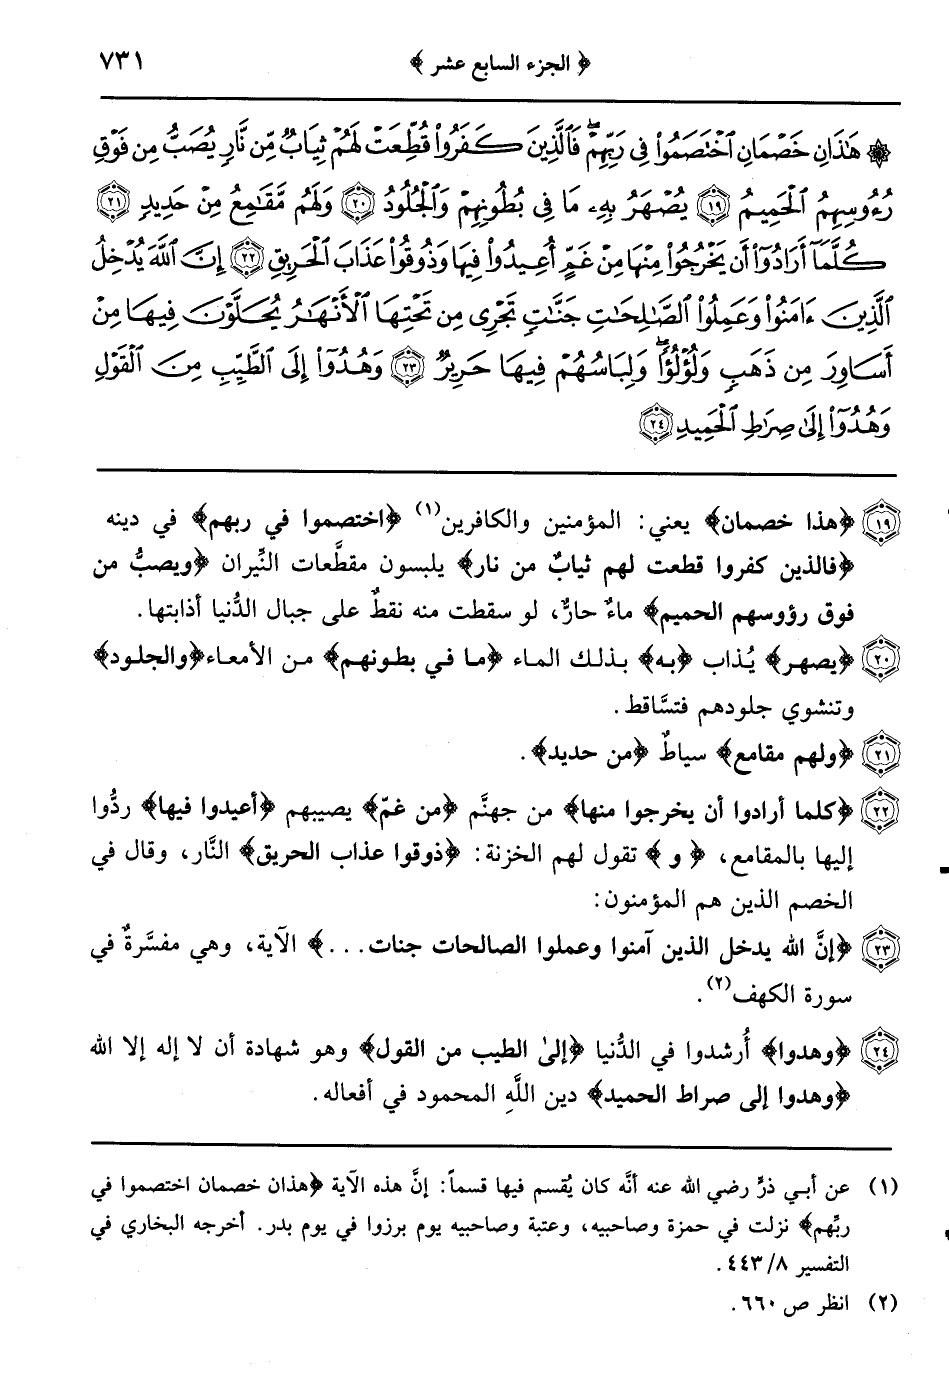 ﴿ الجزء السابع عشر ﴾ ٧٣١
۞ هَٰذَانِ خَصْمَانِ ٱخْتَصَمُوا۟ فِى رَبِّهِمْ ۖ فَٱلَّذِينَ كَفَرُوا۟ قُطِّعَتْ لَهُمْ ثِيَابٌ مِّن نَّارٍ يُصَبُّ مِن فَوْقِ
رُءُوسِهِمُ ٱلْحَمِيمُ ﴿١٩﴾ يُصْهَرُ بِهِۦ مَا فِى بُطُونِهِمْ وَٱلْجُلُودُ ﴿٢٠﴾ وَلَهُم مَّقَٰمِعُ مِنْ حَدِيدٍ ﴿٢١﴾
كُلَّمَآ أَرَادُوٓا۟ أَن يَخْرُجُوا۟ مِنْهَا مِنْ غَمٍّ أُعِيدُوا۟ فِيهَا وَذُوقُوا۟ عَذَابَ ٱلْحَرِيقِ ﴿٢٢﴾ إِنَّ ٱللَّهَ يُدْخِلُ
ٱلَّذِينَ ءَامَنُوا۟ وَعَمِلُوا۟ ٱلصَّٰلِحَٰتِ جَنَّٰتٍ تَجْرِى مِن تَحْتِهَا ٱلْأَنْهَٰرُ يُحَلَّوْنَ فِيهَا مِنْ
أَسَاوِرَ مِن ذَهَبٍ وَلُؤْلُؤًا ۖ وَلِبَاسُهُمْ فِيهَا حَرِيرٌ ﴿٢٣﴾ وَهُدُوٓا۟ إِلَى ٱلطَّيِّبِ مِنَ ٱلْقَوْلِ
وَهُدُوٓا۟ إِلَىٰ صِرَٰطِ ٱلْحَمِيدِ ﴿٢٤﴾
﴿١٩﴾ ﴿هذا خصمان﴾ يعني: المؤمنين والكافرين(١) ﴿اختصموا في ربهم﴾ في دينه
﴿فالذين كفروا قطعت لهم ثيابٌ من نار﴾ يلبسون مقطَّعات النِّيران ﴿ويصبُّ من
فوق رؤوسهم الحميم﴾ ماءٌ حارٌّ، لو سقطت منه نقطٌ على جبال الدُّنيا أذابتها.
﴿٢٠﴾ ﴿يصهر﴾ يُذاب ﴿به﴾ بذلك الماء ﴿ما في بطونهم﴾ من الأمعاء ﴿والجلود﴾
وتنشوي جلودهم فتسَّاقط.
﴿٢١﴾ ﴿ولهم مقامع﴾ سياطٌ ﴿من حديد﴾.
﴿٢٢﴾ ﴿كلما أرادوا أن يخرجوا منها﴾ من جهنَّم ﴿من غمّ﴾ يصيبهم ﴿أعيدوا فيها﴾ ردُّوا
إليها بالمقامع، ﴿ و ﴾ تقول لهم الخزنة: ﴿ذوقوا عذاب الحريق﴾ النَّار، وقال في
الخصم الذين هم المؤمنون:
﴿٢٣﴾ ﴿إنَّ الله يدخل الذين آمنوا وعملوا الصالحات جنات...﴾ الآية، وهي مفسَّرةٌ في
سورة الكهف(٢).
﴿٢٤﴾ ﴿وهدوا﴾ أُرشدوا في الدُّنيا ﴿إلىٰ الطيب من القول﴾ وهو شهادة أن لا إله إلا الله
﴿وهدوا إلى صراط الحميد﴾ دين اللَّهِ المحمود في أفعاله.
(١) عن أبي ذرٍّ رضي الله عنه أنَّه كان يُقسم فيها قسماً: إنَّ هذه الآية ﴿هذان خصمان اختصموا في
ربِّهم﴾ نزلت في حمزة وصاحبيه، وعتبة وصاحبيه يوم برزوا في يوم بدر. أخرجه البخاري في
التفسير ٤٤٣/٨.
(٢) انظر ص ٦٦٠.